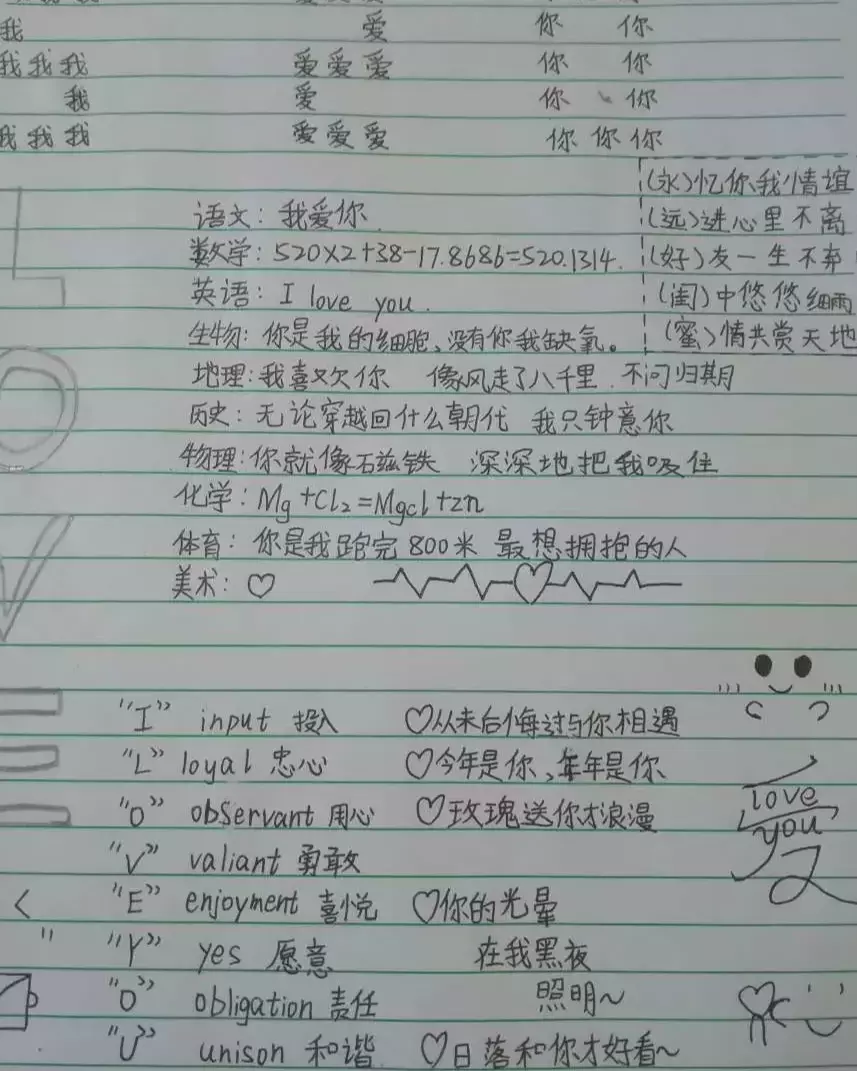 我 爱 你 你
我我我 爱爱爱 你 你
我 爱 你 你
我我我 爱爱爱 你你你
(永)忆你我情谊
语文：我爱你 (远)进心里不离
数学：520×2+38-17.8686=520.1314. (好)友一生不弃
英语：I love you. (闺)中悠悠细雨
生物：你是我的细胞、没有你我缺氧。 (蜜)情共赏天地
地理：我喜欢你 像风走了八千里 不问归期
历史：无论穿越回什么朝代 我只钟意你
物理：你就像石兹铁 深深地把我吸住
化学：Mg+Cl₂=Mgcl+zn
体育：你是我跑完800米 最想拥抱的人
美术：♡
"I" input 投入 ♡从未后悔过与你相遇
"L" loyal 忠心 ♡今年是你、年年是你
"O" observant 用心 ♡玫瑰送你才浪漫
love
you
"V" valiant 勇敢
"E" enjoyment 喜悦 ♡你的光晕
"Y" yes 愿意 在我黑夜
"O" obligation 责任 照明~
"U" unison 和谐 ♡日落和你才好看~